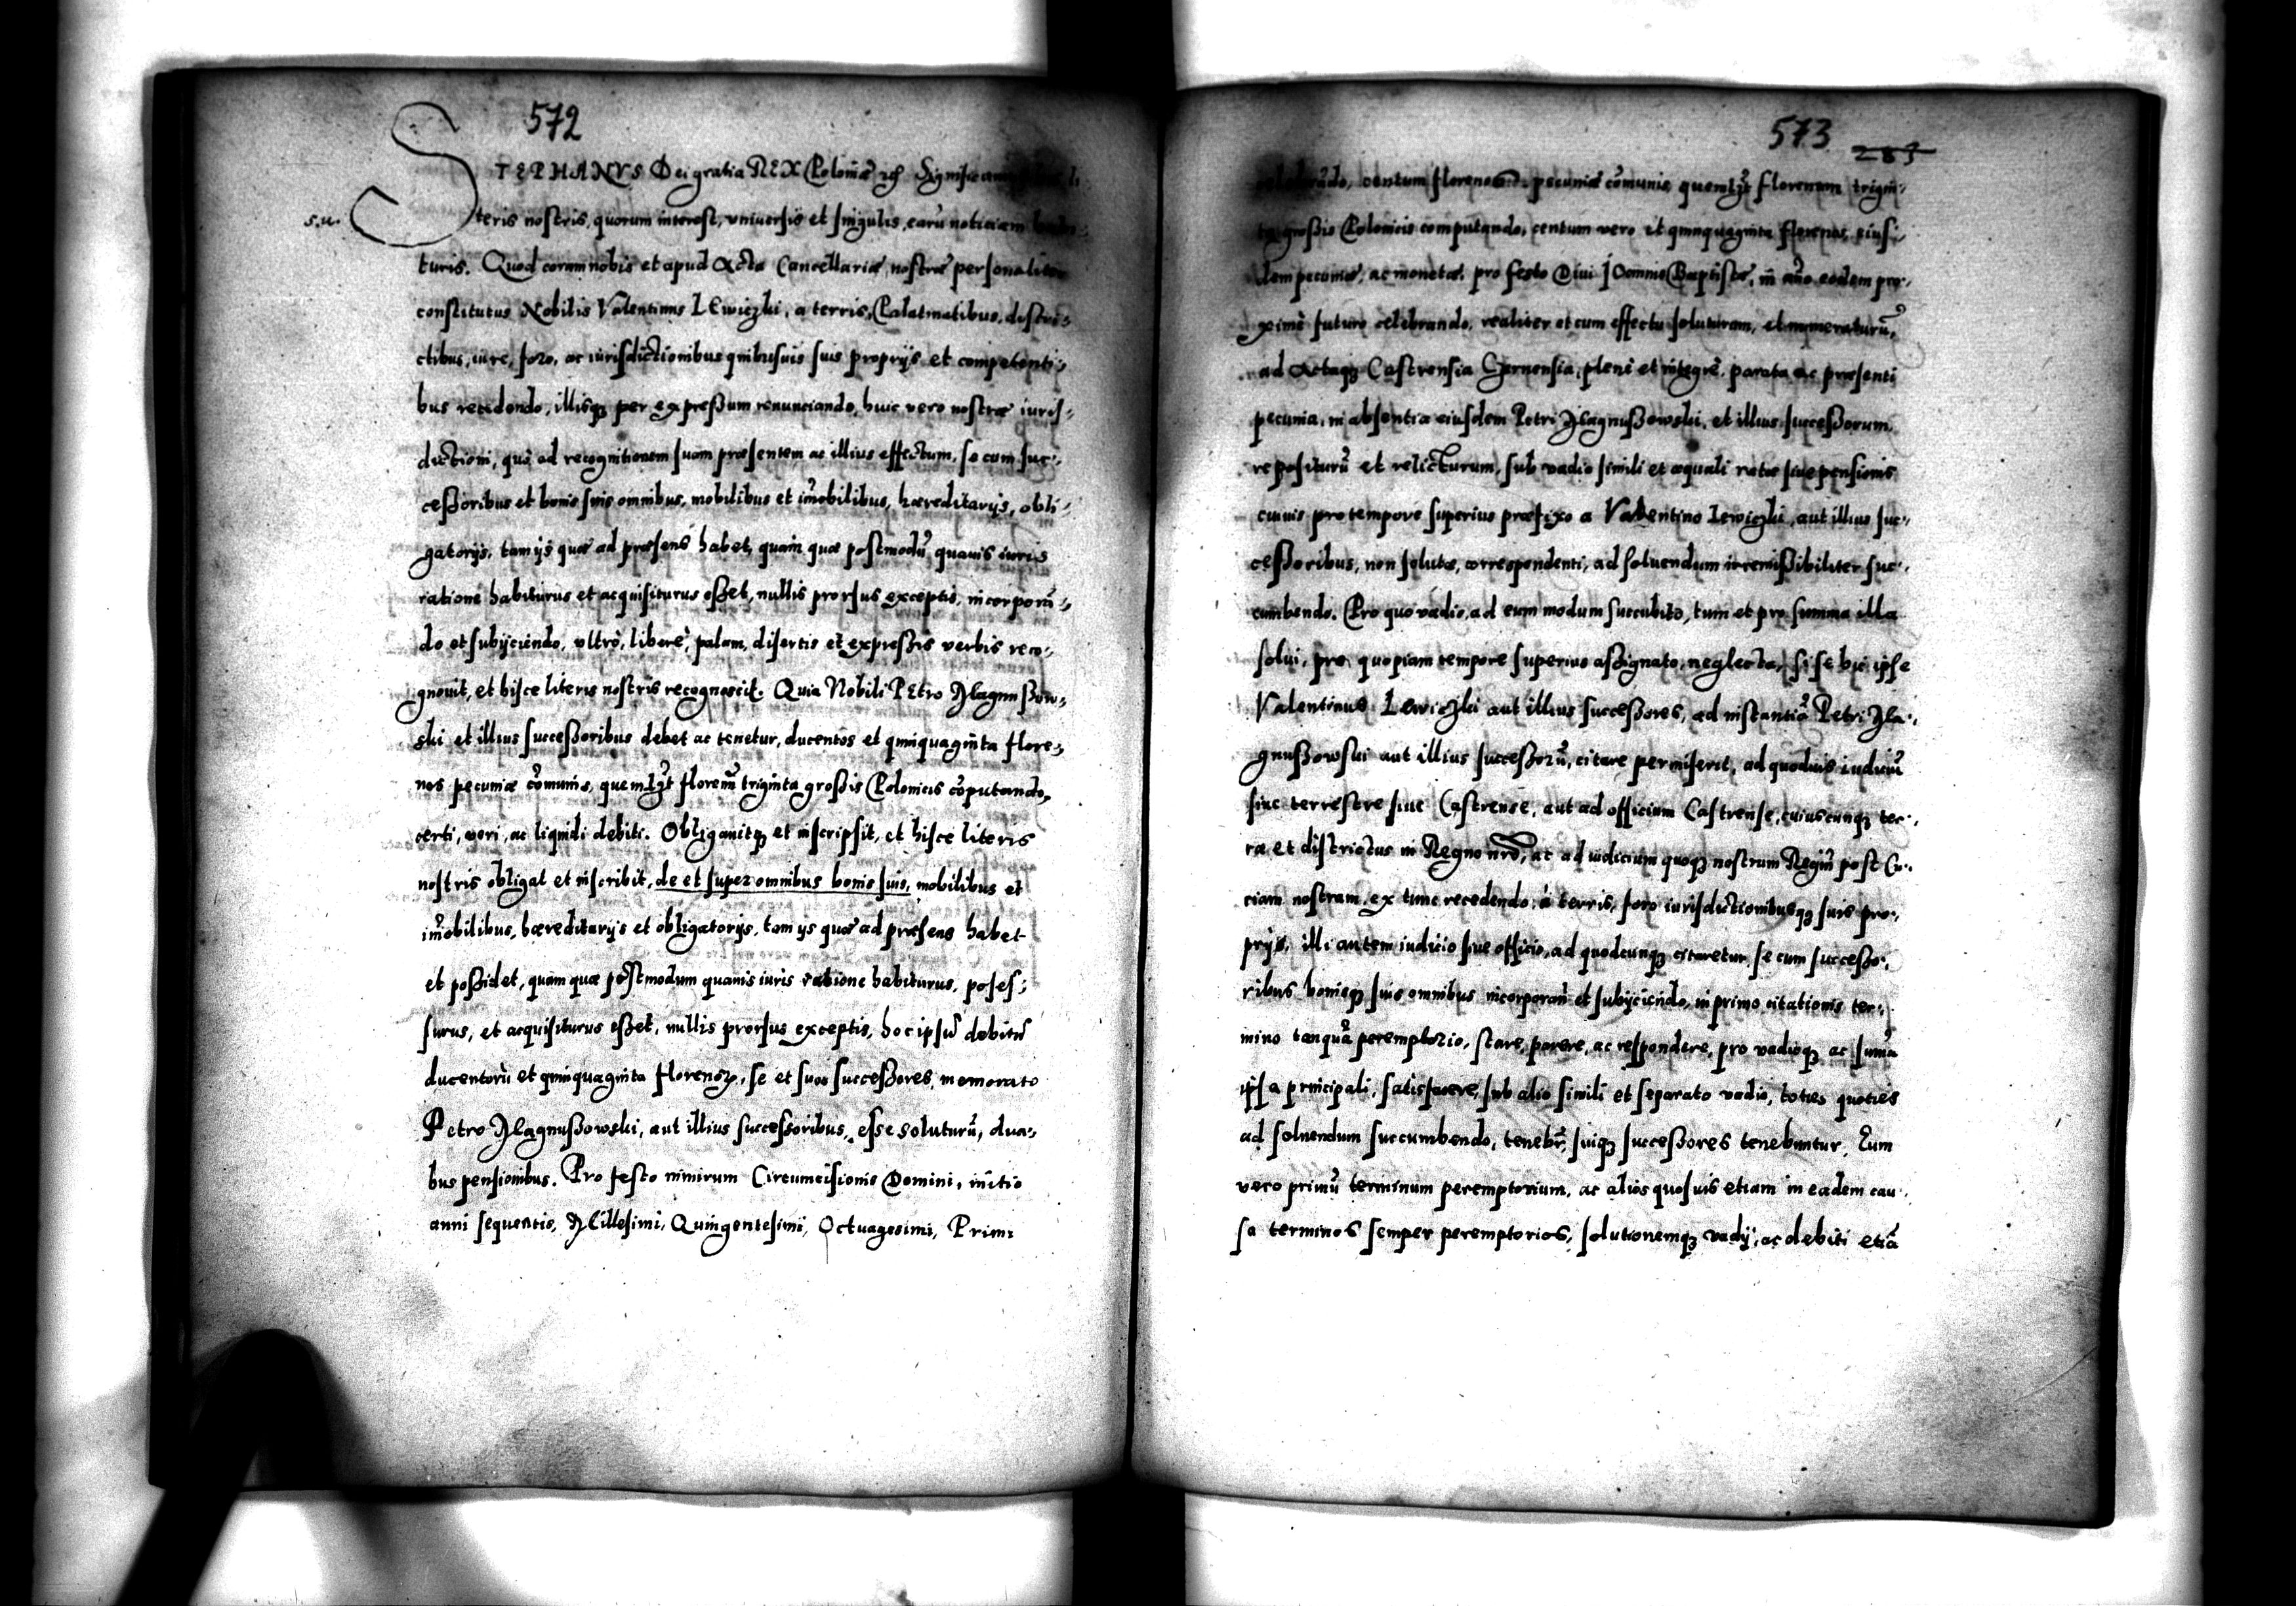 572
STEPHANVS Dei gratia REX Poloniæ etc Significamus
s.u.
teris nostris, quorum interest, vniuersis et singulis, earū noticiam
turis. Quod coram nobis et apud Acta Cancellariæ nostræ personaliter
constitutus Nobilis Valentinus LEwiczki, a terris, Palatinatibus, distri-
ctibus, iure, foro, ac iurisdictionibus quibusuis suis proprijs et competenti-
bus recedendo, illisq3 per expreßum renunciando, huic vero nostræ iuris-
dictioni, quo ad recognitionem suam præsentem ac illius effectum, se cum suc-
ceßoribus et bonis suis omnibus, mobilibus et im̄obilibus, hæreditarijs, obli-
gatorijs, tam ijs quæ ad præsens habet, quam quæ postmodū quauis iuris
ratione habiturus et acquisiturus eßet, nullis prorsus exceptis, incorporā-
do et subijciendo, vltrò, liberè, palam, disertis et expreßis verbis reco-
gnouit, et hisce literis nostris recognoscit. Quia Nobili PEtro Magnußow-
ski et illius succeßoribus debet ac tenetur, ducentos et quinquaginta flore-
nos pecuniæ cōmunis, quemlz̄t florenū triginta großis Polonicis cōputando,
certi, veri, ac liquidi debiti. Obligauitq3 et inscripsit, et hisce literis
nostris obligat et inscribit, de et super omnibus bonis suis, mobilibus et
im̄obilibus, hæreditarijs et obligatorijs, tam ijs quæ ad præsens habet
et poßidet, quam quæ postmodum quauis iuris ratione habiturus, poses-
surus, et acquisiturus eßet, nullis prorsus exceptis, hoc ipsū debitū
ducentorū et quinquaginta florenoꝝ, se et suos succeßores, memorato
Petro Magnußowski, aut illius successoribus, esse soluturū, dua-
bus pensionibus. Pro festo nimirum Circumcisionis Domini, initio
anni sequentis, Millesimi, Quingentesimi, Octuagesimi, Primi
573 283
centum florenos pecuniæ cōmunis, quemlz̄t florenum trigin-
ta großis Polonicis computando, centum vero et quinquaginta florenos, eius-
dem pecuniæ, ac monetæ, pro festo Diui JOannis Baptistæ, in āno eodem pro-
ximè futuro celebrando, realiter et cum effectu soluturum, et numeraturū,
ad Actaq3 Castrensia plenè et integrè, parata ac præsenti
pecunia, in absentia eiusdem Petri Magnußowski, et illius succeßorum,
repositurū et relicturum, sub vadio simili et æquali ratæ siue pensionis
cuiuis pro tempore superius præfixo a Valentino Lewiczki, aut illius suc-
ceßoribus, non solutæ, correspondenti, ad soluendum irremißibiliter suc-
cumbendo. Pro quo vadio, ad eum modum succubito, tum et pro summa illa
solui, pro quopiam tempore superius aßignato, neglecta, si se hic ipse
Valentinus Lewiczki aut illius succeßores, ad instantiā Petri Ma-
gnußowski aut illius succeßorū, citare permiserit, ad quoduis iudiciū
siue terrestre siue Castrense, aut ad officium Castrense, cuiuscunq3 ter-
ræ et districtus in Regno nrō, ac ad iudicium quoq3 nostrum Regiū post Cu-
riam nostram, ex tunc recedendo, à terris, foro iurisdictionibusq3 suis pro-
prijs, illi autem iudicio siue officio, ad quodcunq3 citaretur se cum succeßo-
ribus bonisq3 suis omnibus incorporan̄ et subijciendo, in primo citationis ter-
mino tanquā peremptorio, stare, parere, ac respondere, pro vadioq3 ac sum̄a
ipsa principali, satisfacere, sub alio simili et separato vadio, toties quoties
ad soluendum succumbendo, tenebr̄, suiq3 succeßores tenebuntur. Eum
vero primū terminum peremptorium, ac alios quosuis etiam in eadem cau-
sa terminos semper peremptorios, solutionemq3 vadij, ac debiti etiā